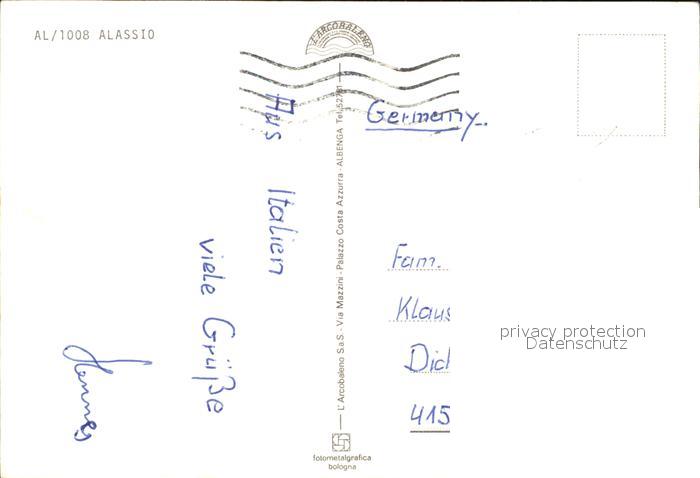 AL/1008 ALASSIO
L'ARCOBALENO
Aus Italien
viele Grüße
Hannes
L'Arcobaleno S.a.S. - Via Mazzini - Palazzo Costa Azzurra - ALBENGA Tel. 52781
fotometalgrafica
bologna
Germany.
Fam.
Klaus
Did
415
privacy protection
Datenschutz